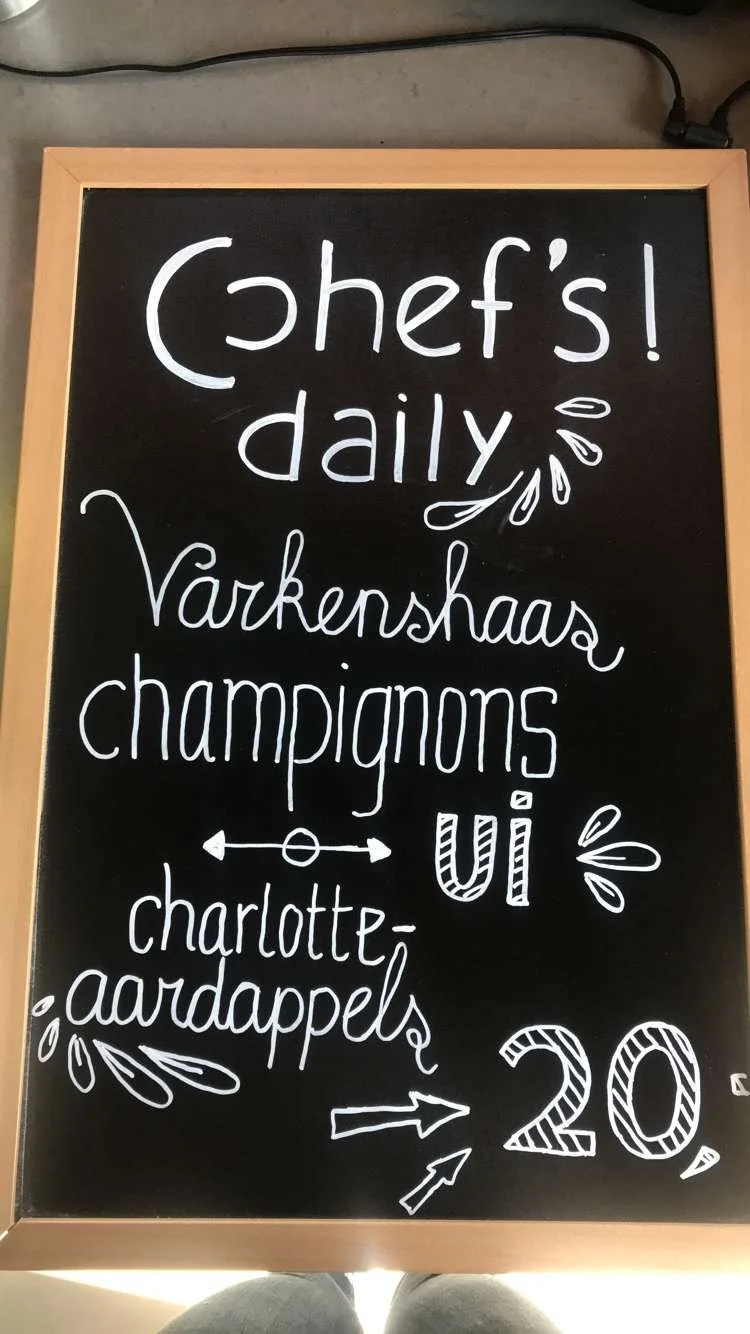 Chef's!
daily
Varkenshaas
champignons
ui
charlotte-
aardappels
20,-